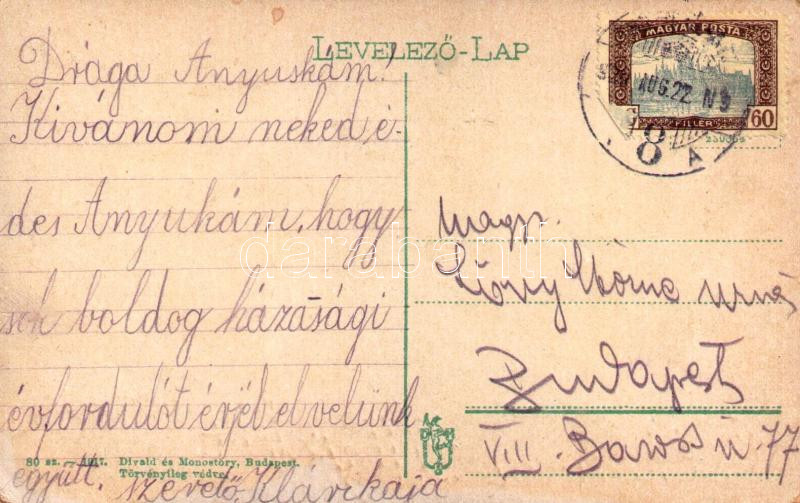 LEVELEZŐ-LAP
MAGYAR POSTA
60 FILLÉR
AUG. 22. N 9
8 A
Drága Anyuskám!
Kivánom neked é-
des Anyukám, hogy
sok boldog házasági
évfordulót érjél el velünk
együtt. szerető Klárikája
80 sz. — 1917. Divald és Monostory, Budapest.
Törvényileg védve.
Nagys.
Budapest
VIII. Baross u 77
darabanth